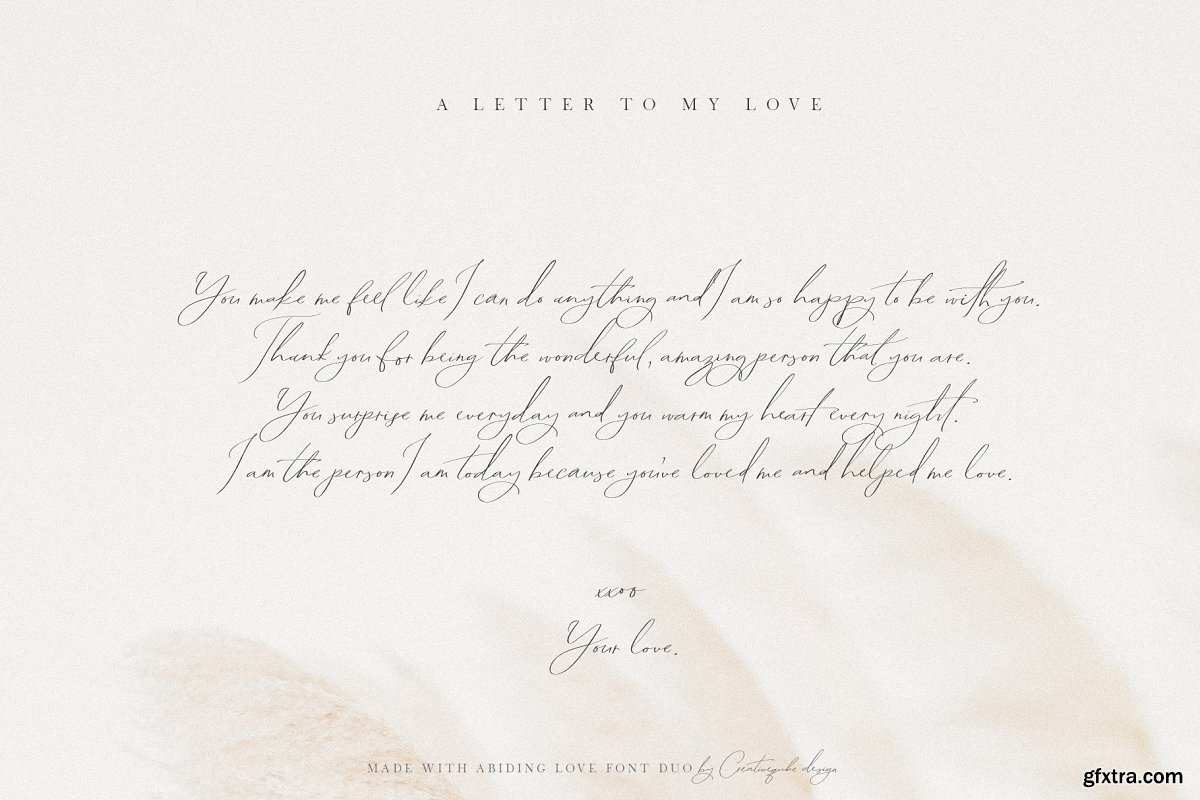 A LETTER TO MY LOVE
You make me feel like I can do anything and I am so happy to be with you.
Thank you for being the wonderful, amazing person that you are.
You surprise me everyday and you warm my heart every night.
I am the person I am today because you've loved me and helped me love.
xxoo
Your love.
MADE WITH ABIDING LOVE FONT DUO by Creativeqube design
gfxtra.com